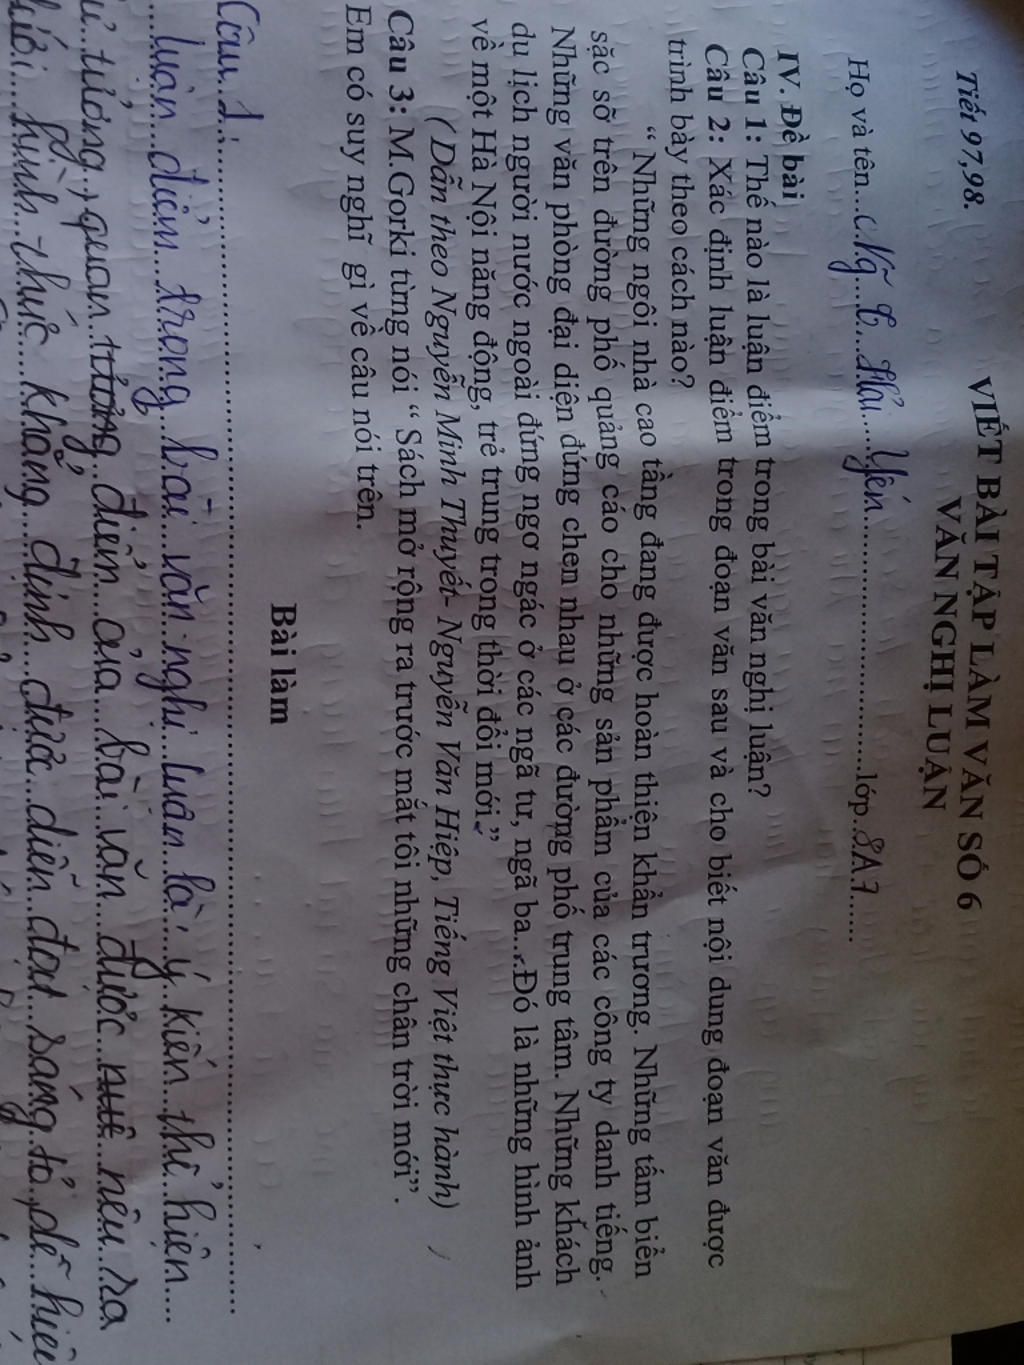 Tiết 97,98.
VIẾT BÀI TẬP LÀM VĂN SỐ 6
VĂN NGHỊ LUẬN
Họ và tên... Yến...lớp..8A7.....
IV. Đề bài
Câu 1: Thế nào là luận điểm trong bài văn nghị luận?
Câu 2: Xác định luận điểm trong đoạn văn sau và cho biết nội dung đoạn văn được
trình bày theo cách nào?
“ Những ngôi nhà cao tầng đang được hoàn thiện khẩn trương. Những tấm biển
sặc sỡ trên đường phố quảng cáo cho những sản phẩm của các công ty danh tiếng.
Những văn phòng đại diện đứng chen nhau ở các đường phố trung tâm. Những khách
du lịch người nước ngoài đứng ngơ ngác ở các ngã tư, ngã ba...Đó là những hình ảnh
về một Hà Nội năng động, trẻ trung trong thời đổi mới.”
( Dẫn theo Nguyễn Minh Thuyết- Nguyễn Văn Hiệp, Tiếng Việt thực hành)
Câu 3: M.Gorki từng nói “ Sách mở rộng ra trước mắt tôi những chân trời mới”.
Em có suy nghĩ gì về câu nói trên.
Bài làm
Câu 1:
luận điểm trong bài văn nghị luận là ý kiến thể hiện
tư tưởng, quan điểm của bài văn được nêu ra
hình thức khẳng định được diễn đạt sáng tỏ, dễ hiểu